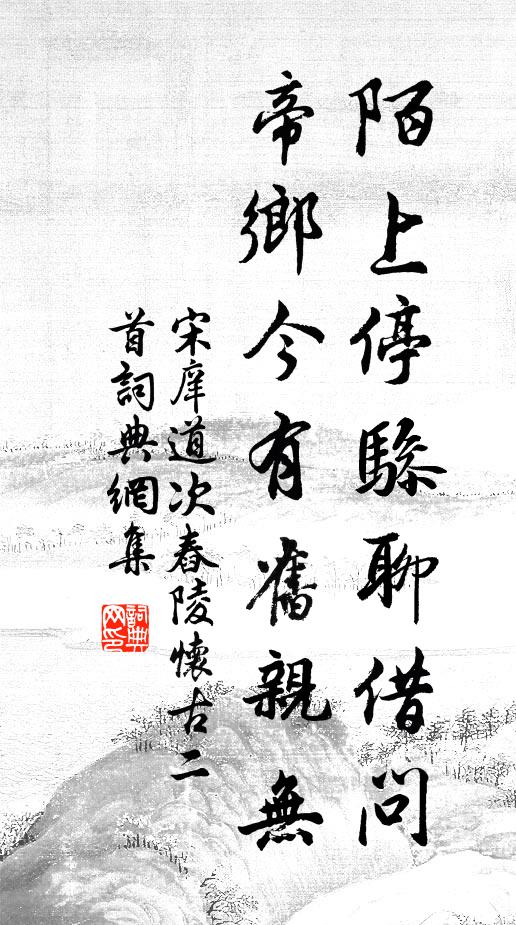 陌上停驂聊借問
帝鄉今有舊親無
宋庠道次舂陵懷古二
首詞典網集
詞典
网印